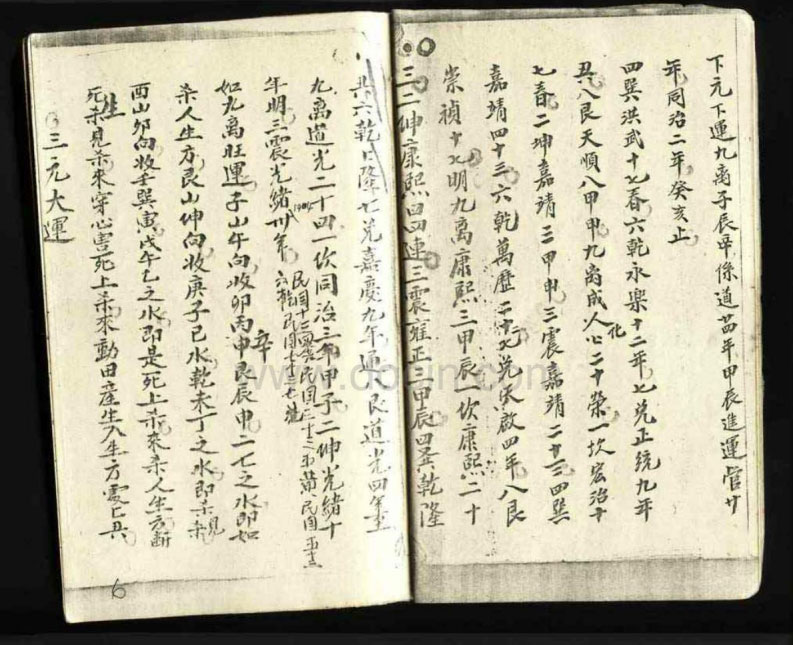 下元下運九离子辰早係道廿四年甲辰進運管廿
年同治二年癸亥止
四巽洪武十七春六乾永樂十二年七兑正統九年
丑八艮天順八甲申九离成人化二十榮一坎宏治十
七春二坤嘉靖三甲申三震嘉靖二十三四巽
嘉靖四十三六乾萬歷二十七兑天啟四年八艮
崇禎十七明九离康熙三甲辰一坎康熙二十
三二坤康熙四四連三震雍正二甲辰四巽乾隆
共六乾上隆七兑嘉慶九年運艮道光四年
九离道光二十四一坎同治三年甲子二坤光緒十
年明三震光緒卅年
民國十三四巽民國三十三五黄民國五十三
六乾民國七十三七
如九离旺運子山午向收卯丙申艮辰申二七之水即如
辛
杀人生方艮山坤向收庚子巳水乾未丁之水即杀来
見
酉山卯向收壬巽寅戌午乙之水即是死上杀來杀人生方断
生
死杀見杀來穿心害死上杀來動田產生入生方處亡
三元大運
6